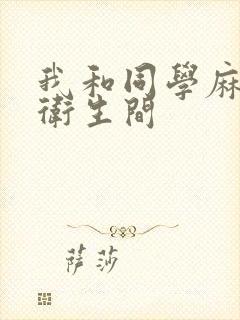 我和同學麻
衛生間
萨莎